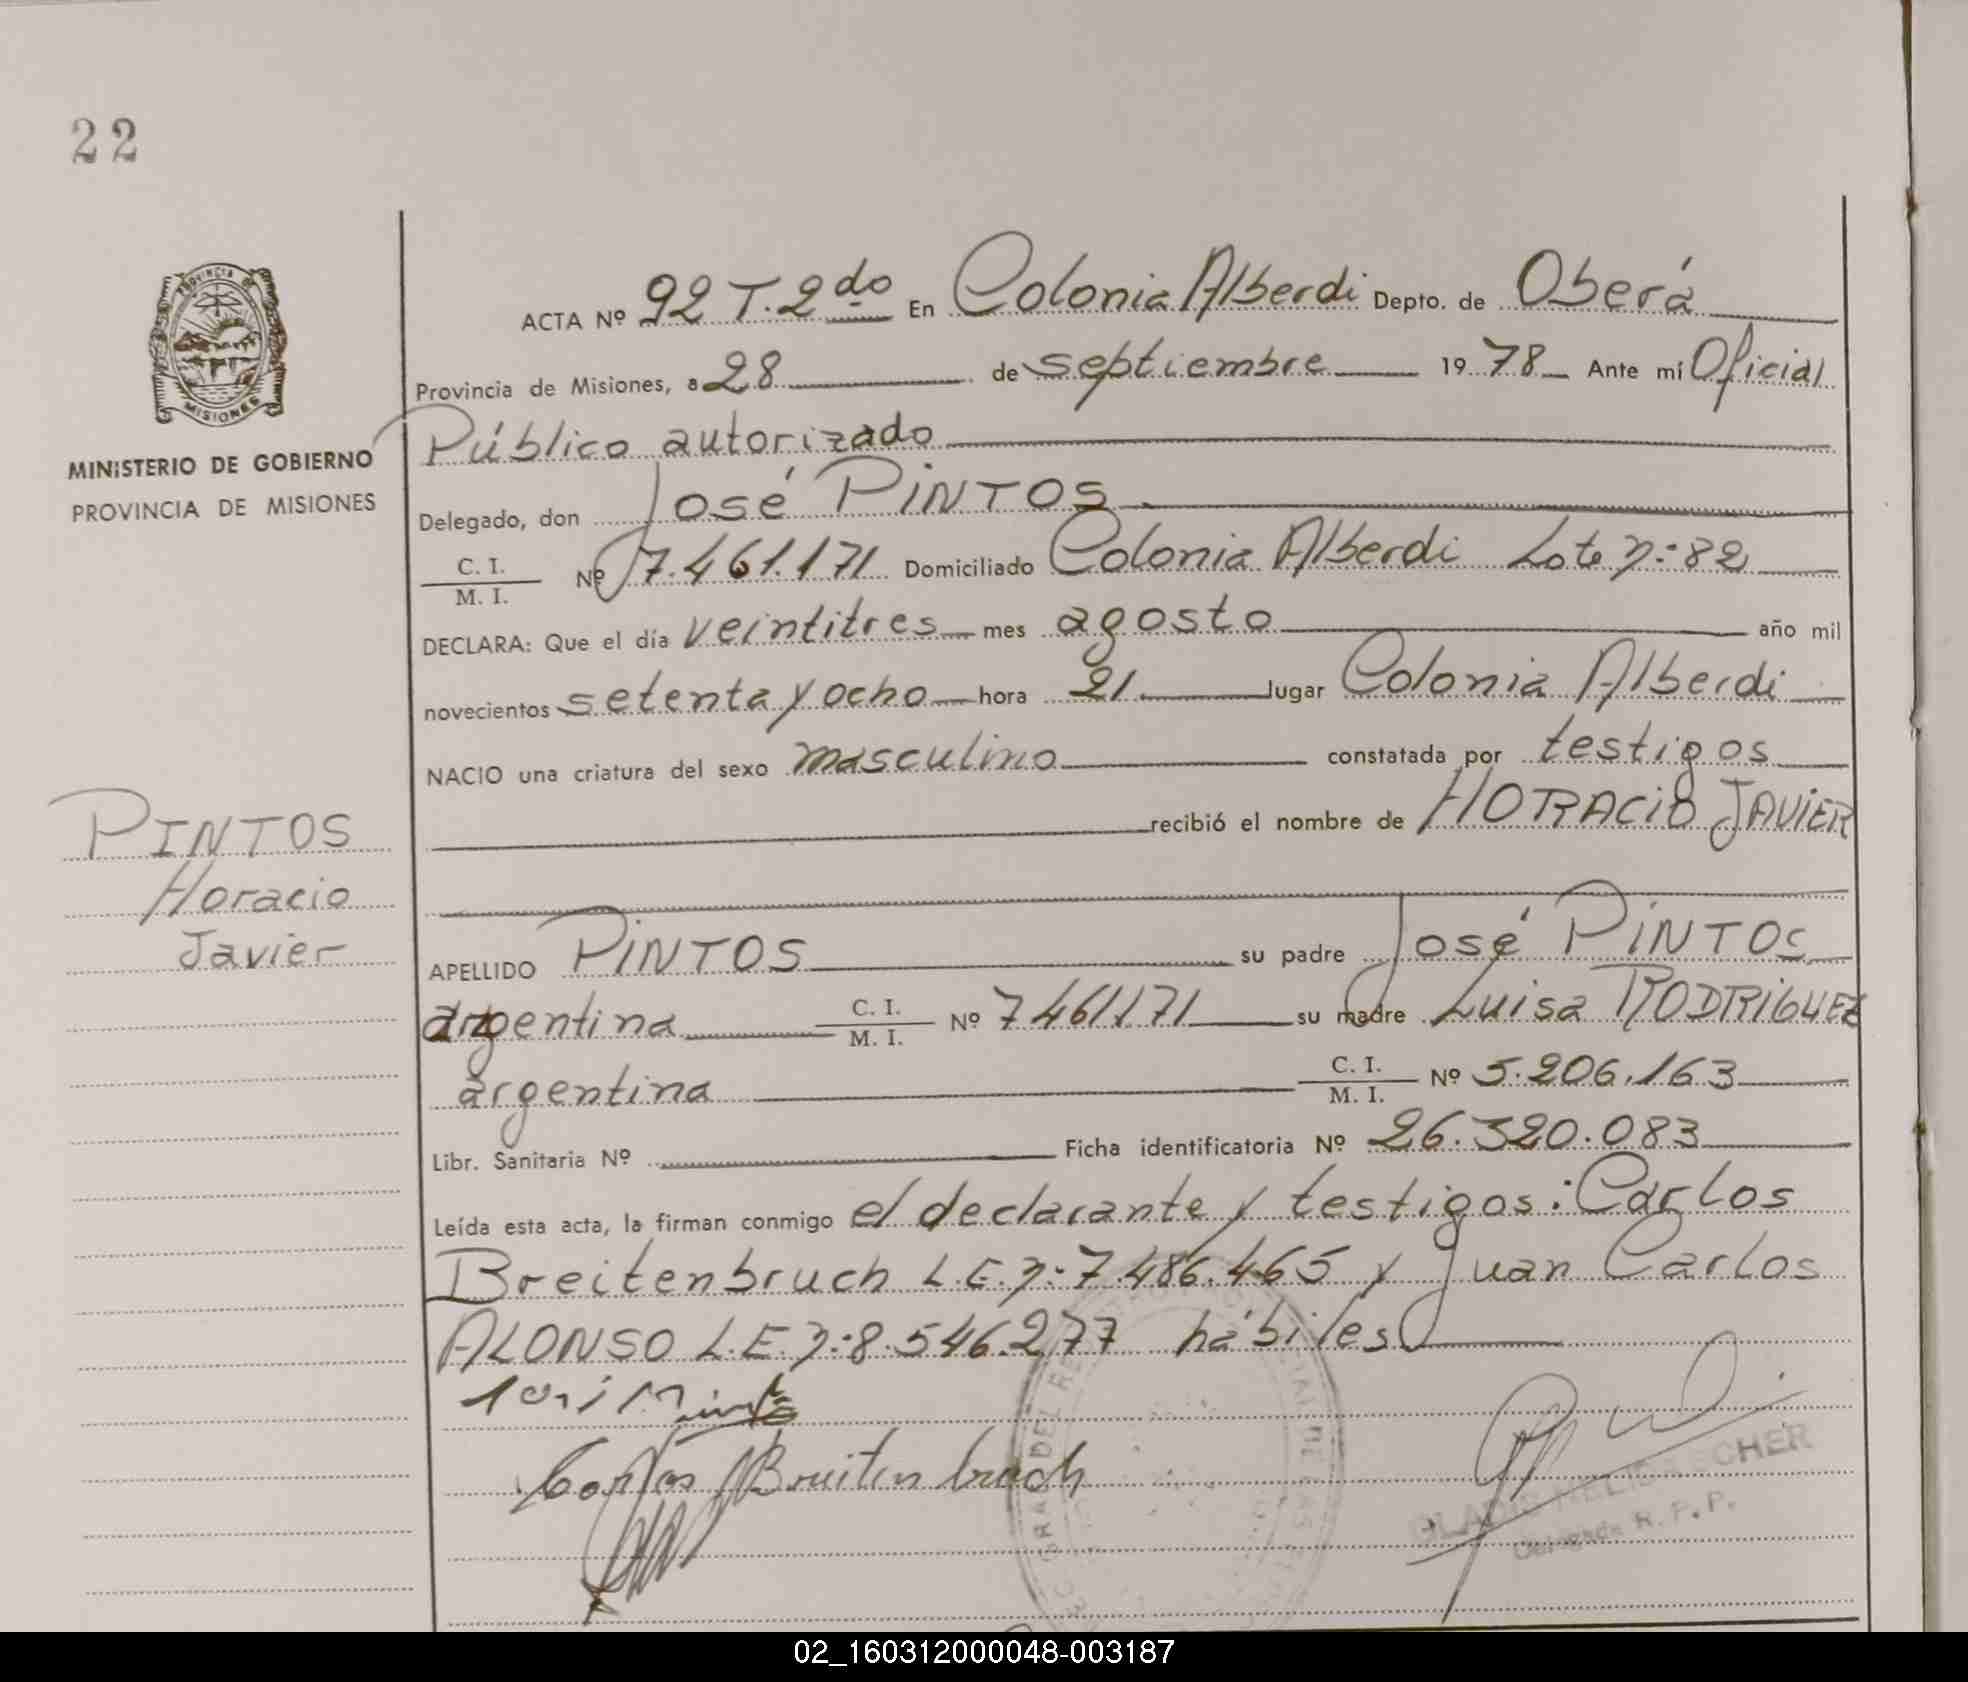 22
PROVINCIA DE
MISIONES
MINISTERIO DE GOBIERNO
PROVINCIA DE MISIONES
ACTA Nº 92 T. 2do En Colonia Alberdi Depto. de Oberá
Provincia de Misiones, a 28 de septiembre 1978 Ante mí Oficial
Público autorizado
Delegado, don José PINTOS
C. I.
M. I. Nº 7.461.171 Domiciliado Colonia Alberdi Lote n: 82
DECLARA: Que el día veintitres mes agosto año mil
novecientos setenta y ocho hora 21 lugar Colonia Alberdi
NACIO una criatura del sexo masculino constatada por testigos
recibió el nombre de HORACIO JAVIER
PINTOS
Horacio
Javier
APELLIDO PINTOS su padre José PINTOS
argentina C. I.
M. I. Nº 7461171 su madre Luisa RODRIGUEZ
argentina C. I.
M. I. Nº 5.206.163
Libr. Sanitaria Nº Ficha identificatoria Nº 26.320.083
Leída esta acta, la firman conmigo el declarante y testigos: Carlos
Breitenbruch L.E. n: 7.486.465 y Juan Carlos
ALONSO L.E. n: 8.546.277 hábiles
Carlos Breitenbruch
GLADIS
Delegada R. P. P.
02_160312000048-003187